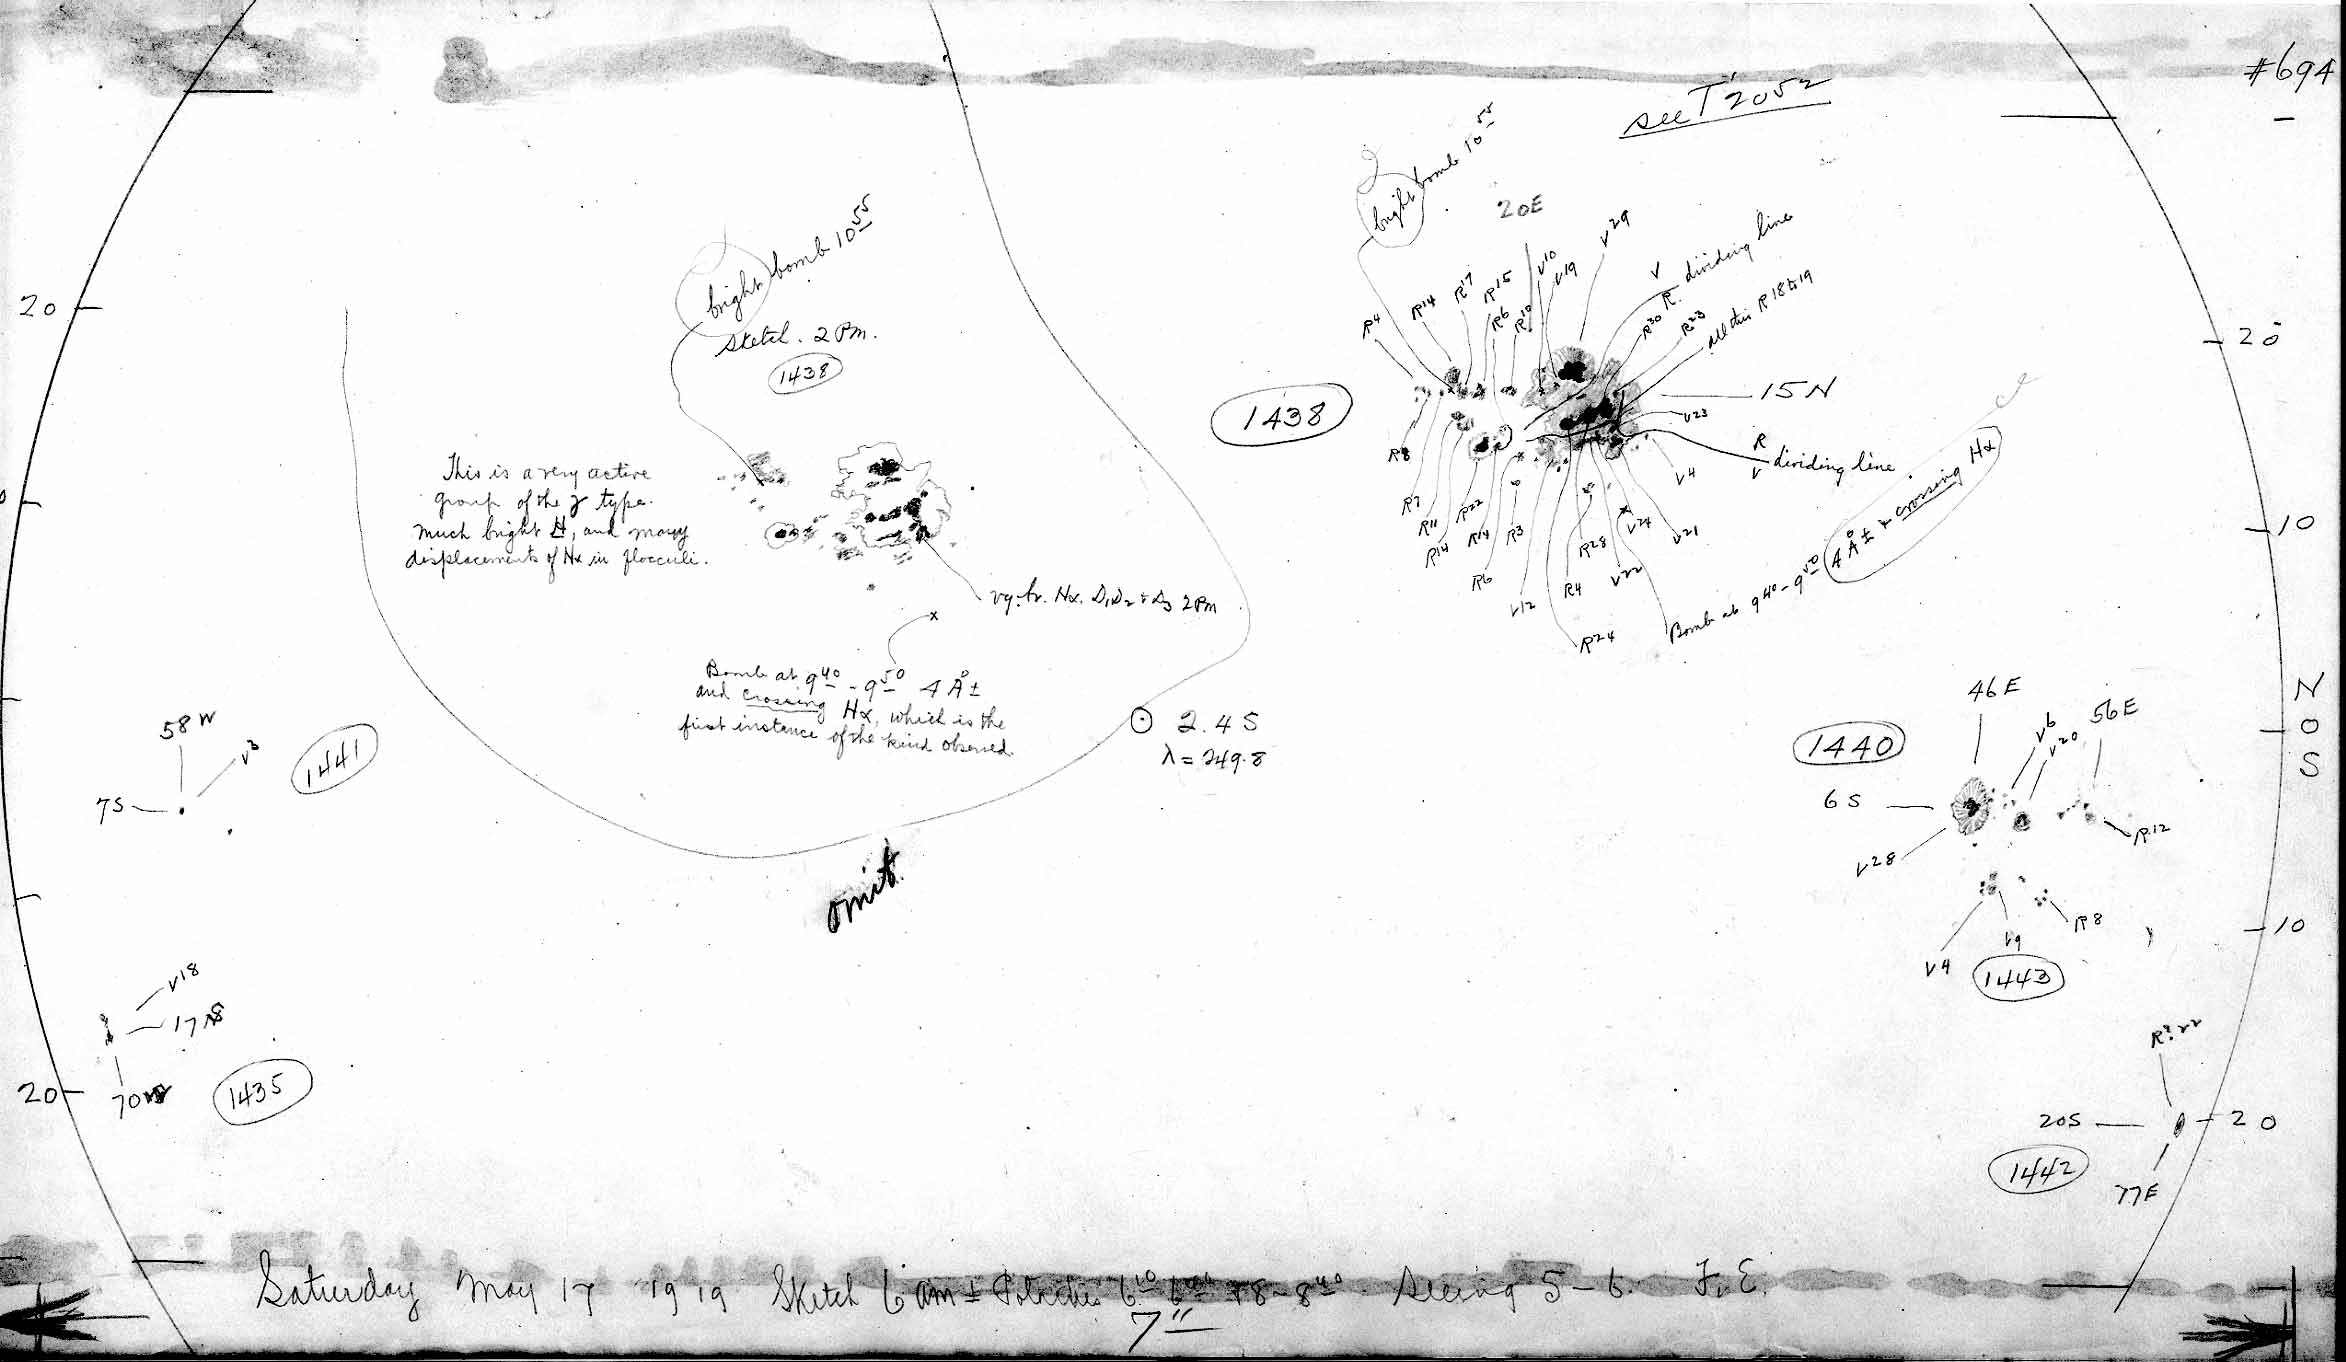 #694
see T' 2052
bright bomb 10 55
sketch. 2 Pm.
1438
This is a very active
group of the γ type.
Much bright H, and many
displacements of Hα in flocculi.
vy. br. Hα. D1 D2 + D3 2 Pm
Bomb at 9 40 - 9 50 4 Å ±
and crossing Hα, which is the
first instance of the kind observed
omit.
⊙ 2.4 S
λ = 249.8
bright bomb 10 55
20E
V29
V10
V19
R15
R17
R14
R4
R6
R10
V
R. dividing line
R30
R23
all this R 18 to 19
1438
15 N
V23
R
V dividing line
V4
R8
R7
R11
R14
R22
R18
R3
R6
V12
R4
R28
V22
V24
V21
R24
Bomb at 9 40 - 9 50 4 Å ± + crossing Hα
20
20
10
N
0
S
10
20
20
58 W
V3
7S
1441
V18
17 S
70 W
1435
46 E
56 E
V6
V20
1440
6 S
V28
R12
R8
V9
V4
1443
R? 22
20S
77E
1442
Saturday May 17 1919 Sketch 6 am ± Polarities 6 10 - 6 40 + 8 - 8 40 Seeing 5 - 6. F. E.
7"